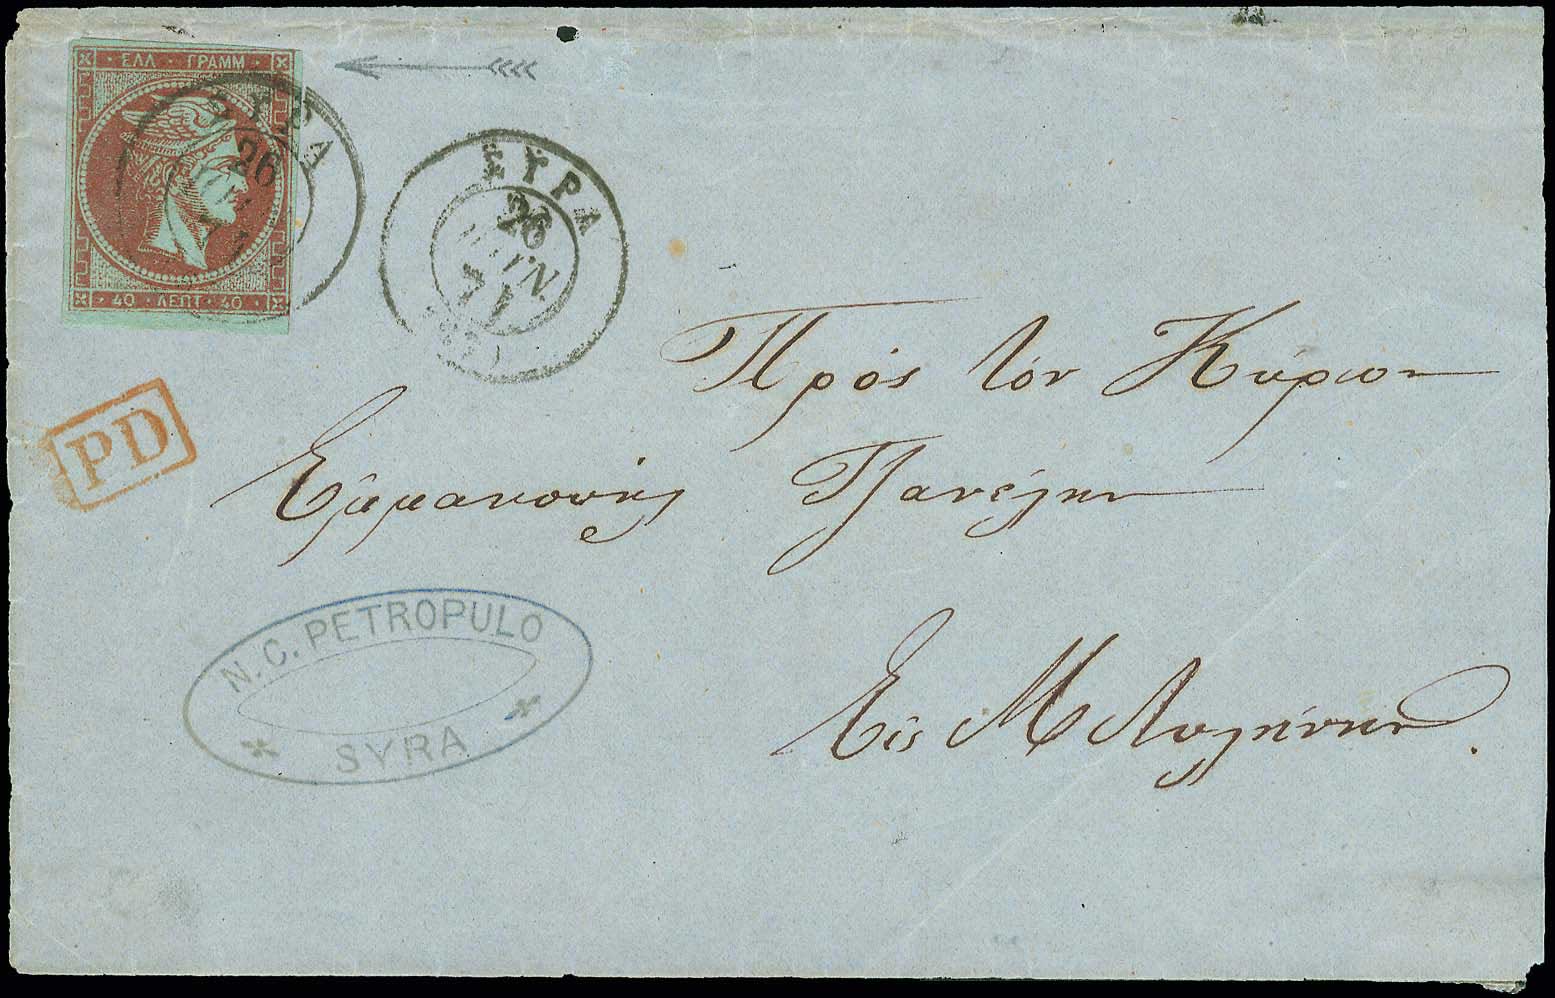 ΕΛΛ ΓΡΑΜΜ
40 ΛΕΠΤ 40
ΣΥΡΑ
26
ΣΥΡΑ
26
ΙΟΥΝ.
71
PD
Πρὸς τὸν Κύριον
Ἐμμανουὴλ
Εἰς
N.C. PETROPULO
SYRA